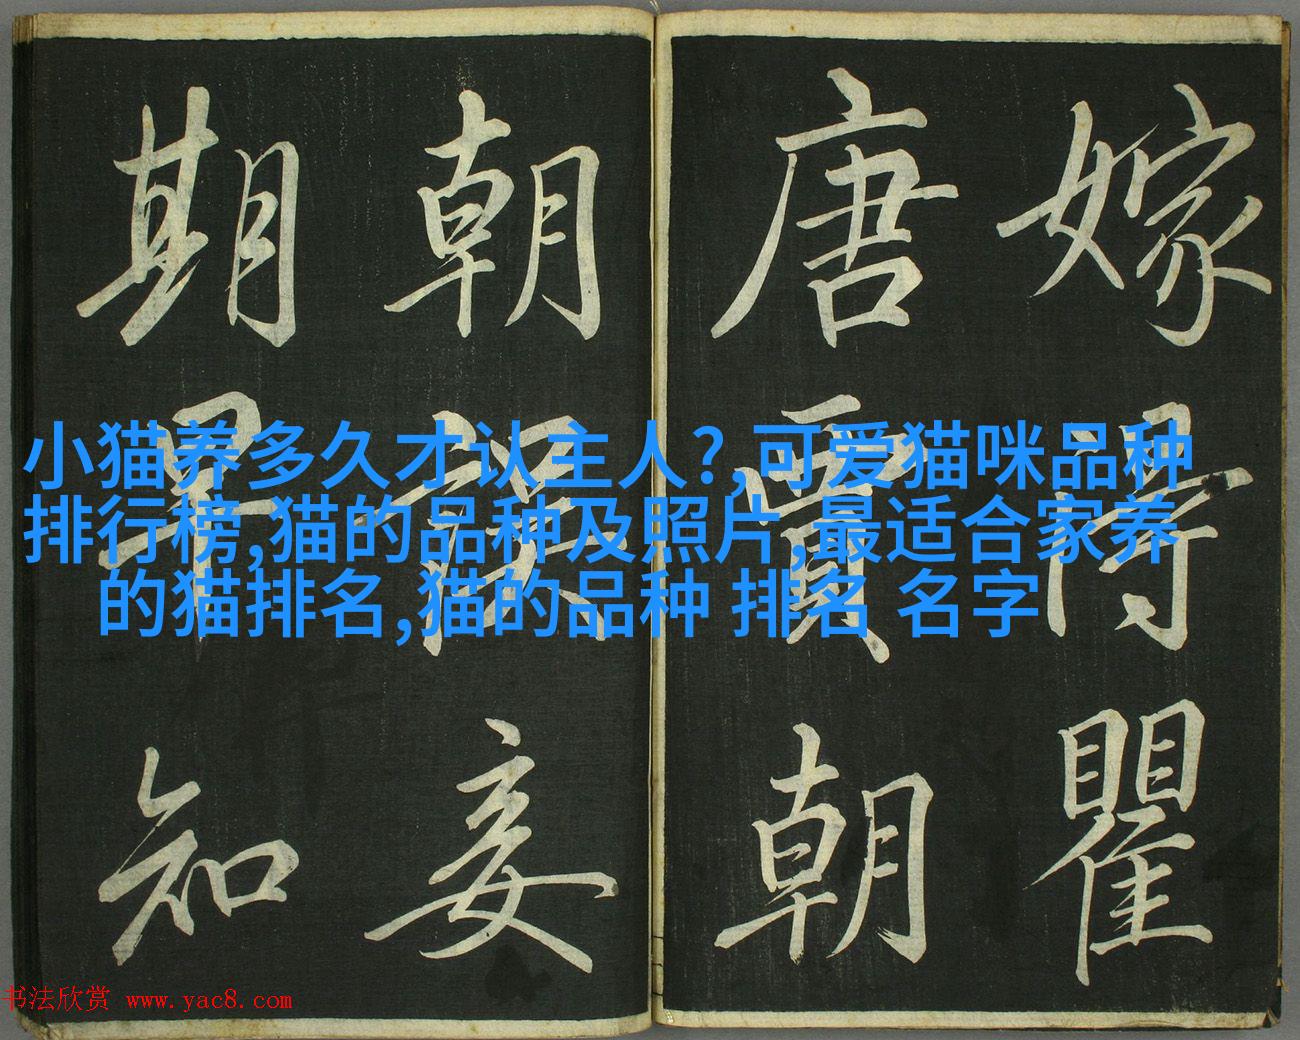 嫁得瞿
唐賈朝
朝誤妾
期早知
小猫养多久才认主人?,可爱猫咪品种
排行榜,猫的品种及照片,最适合家养
的猫排名,猫的品种 排名 名字
书法欣赏 www.yac8.com